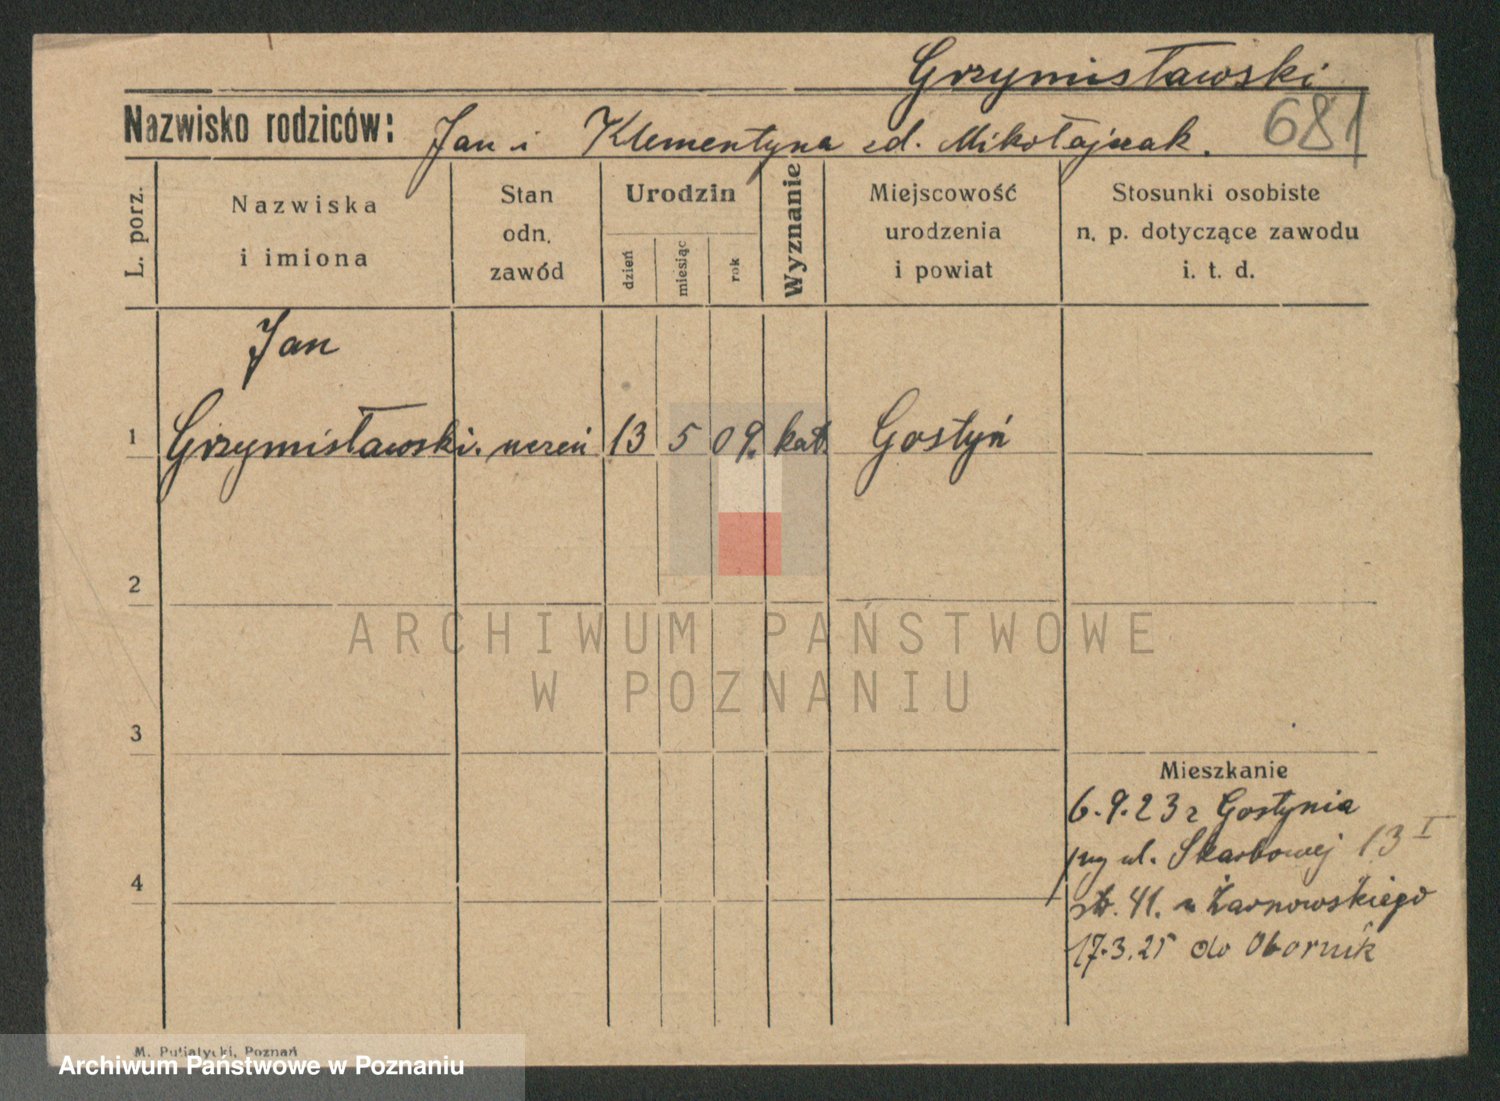 Grzymisławski
681
Nazwisko rodziców: Jan i Klementyna zd. Mikołajczak.
L. porz.
Nazwiska
i imiona
Stan
odn.
zawód
Urodzin
dzień
miesiąc
rok
Wyznanie
Miejscowość
urodzenia
i powiat
Stosunki osobiste
n. p. dotyczące zawodu
i. t. d.
Jan
1 Grzymisławski. uczeń 13 5 09. kat. Gostyń
2
ARCHIWUM PAŃSTWOWE
W POZNANIU
3
Mieszkanie
6.9.23 z Gostynia
przy ul. Skarbowej 13 I
4
41. u Żarnowskiego
17.3.25 do Obornik
M. Putiatycki, Poznań
Archiwum Państwowe w Poznaniu